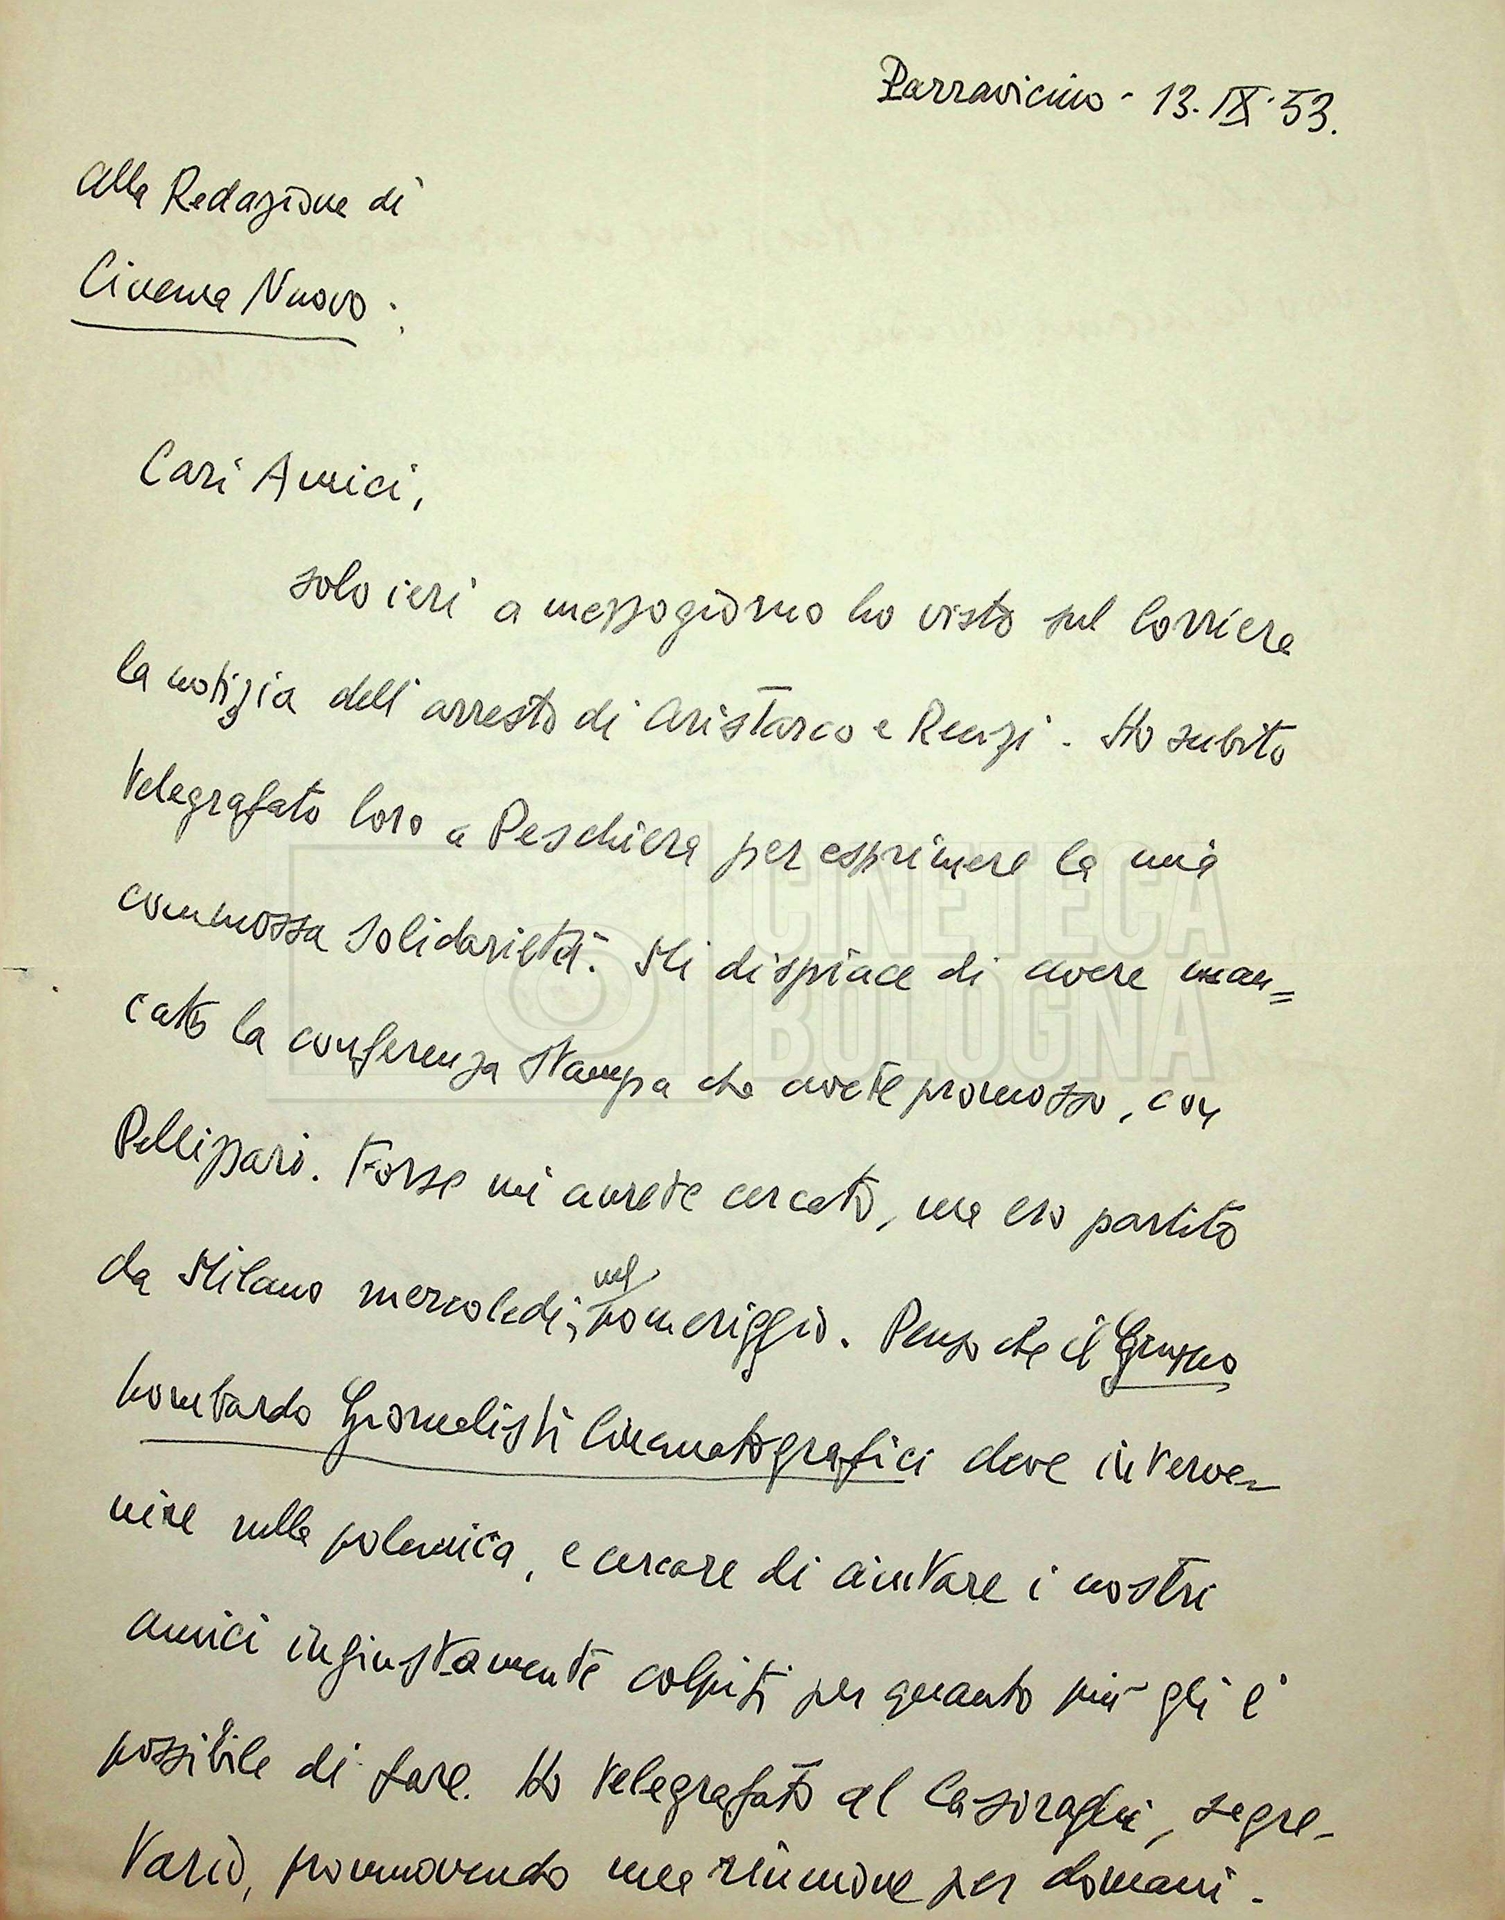 Parravicino - 13.IX.53.
Alla Redazione di
Cinema Nuovo:
Cari Amici,
solo ieri a mezzogiorno ho visto sul Corriere
la notizia dell'arresto di Aristarco e Renzi. Ho subito
telegrafato loro a Peschiera per esprimere la mia
commossa solidarietà. Mi dispiace di avere man=
cato la conferenza stampa che avete promosso, con
Pellizzari. Forse mi avrete cercato, ma ero partito
da Milano mercoledì, nel pomeriggio. Penso che il Gruppo
Lombardo Giornalisti Cinematografici deve interve-
nire nella polemica, e cercare di aiutare i nostri
amici ingiustamente colpiti per quanto più gli è
possibile di fare. Ho telegrafato al Casiraghi, segre-
tario, promuovendo una riunione per domani.
CINETECA
BOLOGNA